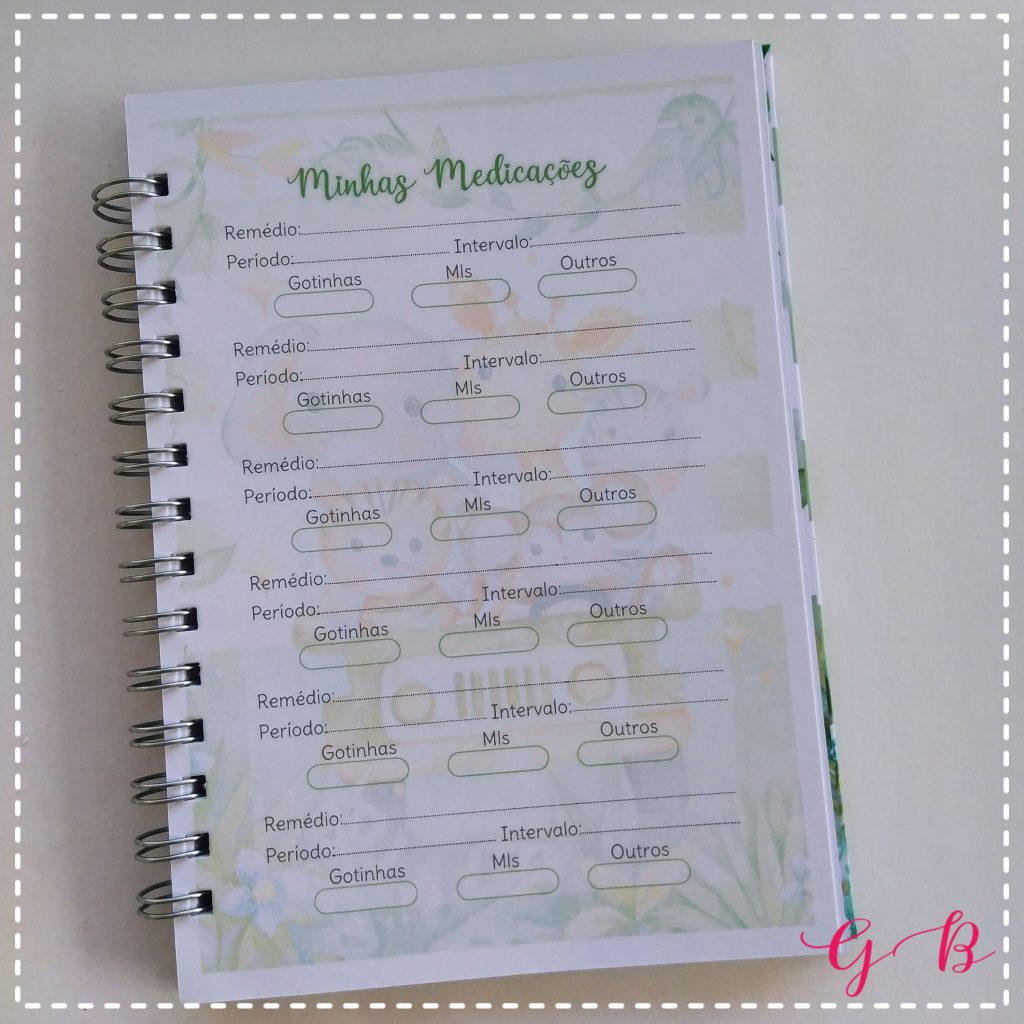 Minhas Medicações
Remédio:
Período: Intervalo:
Gotinhas Mls Outros
Remédio:
Período: Intervalo:
Gotinhas Mls Outros
Remédio:
Período: Intervalo:
Gotinhas Mls Outros
Remédio:
Período: Intervalo:
Gotinhas Mls Outros
Remédio:
Período: Intervalo:
Gotinhas Mls Outros
Remédio:
Período: Intervalo:
Gotinhas Mls Outros
G B